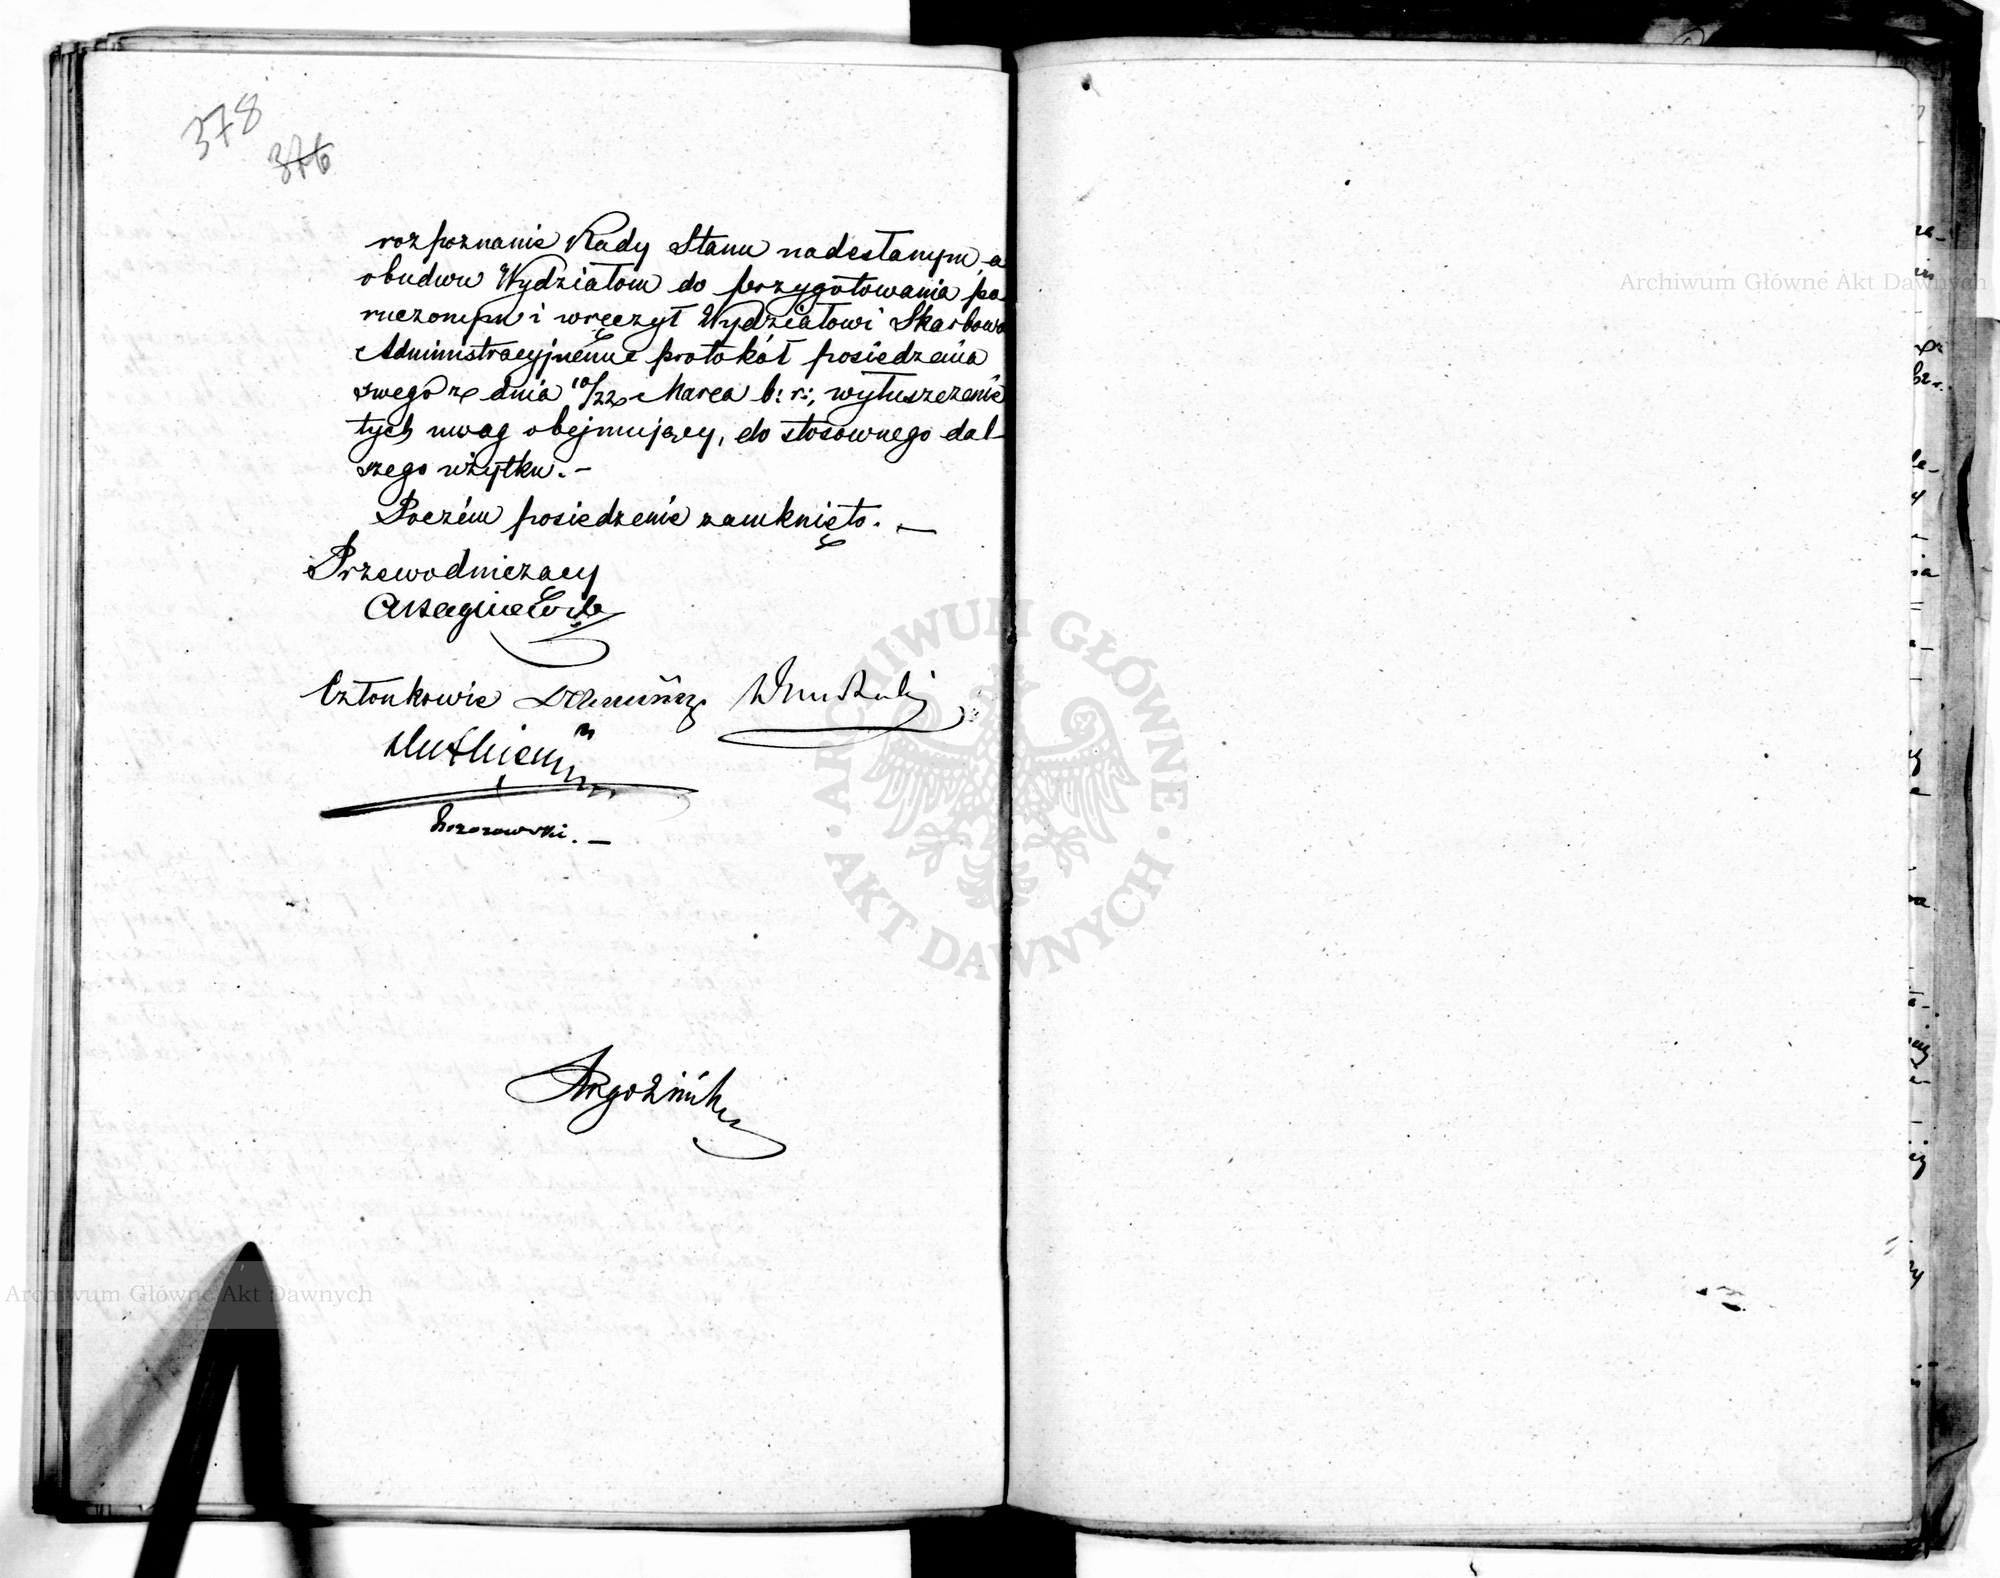 378
376
rozpoznanie Rady Stanu nadesłanym, a
obudwu Wydziałom do przygotowania po-
ruczonym i wręczył Wydziałowi Skarbowo
Administracyjnemu protokół posiedzenia
swego z dnia 10/22 Marca b: r:, wyłuszczenie
tych uwag obejmujący, do stosownego dal-
szego użytku. –
Poczém posiedzenie zamknięto. –
Przewodniczący
Członkowie
Brzozowski. –
ARCHIWUM GŁÓWNE
AKT DAWNYCH
Archiwum Główne Akt Dawnych
Archiwum Główne Akt Dawnych